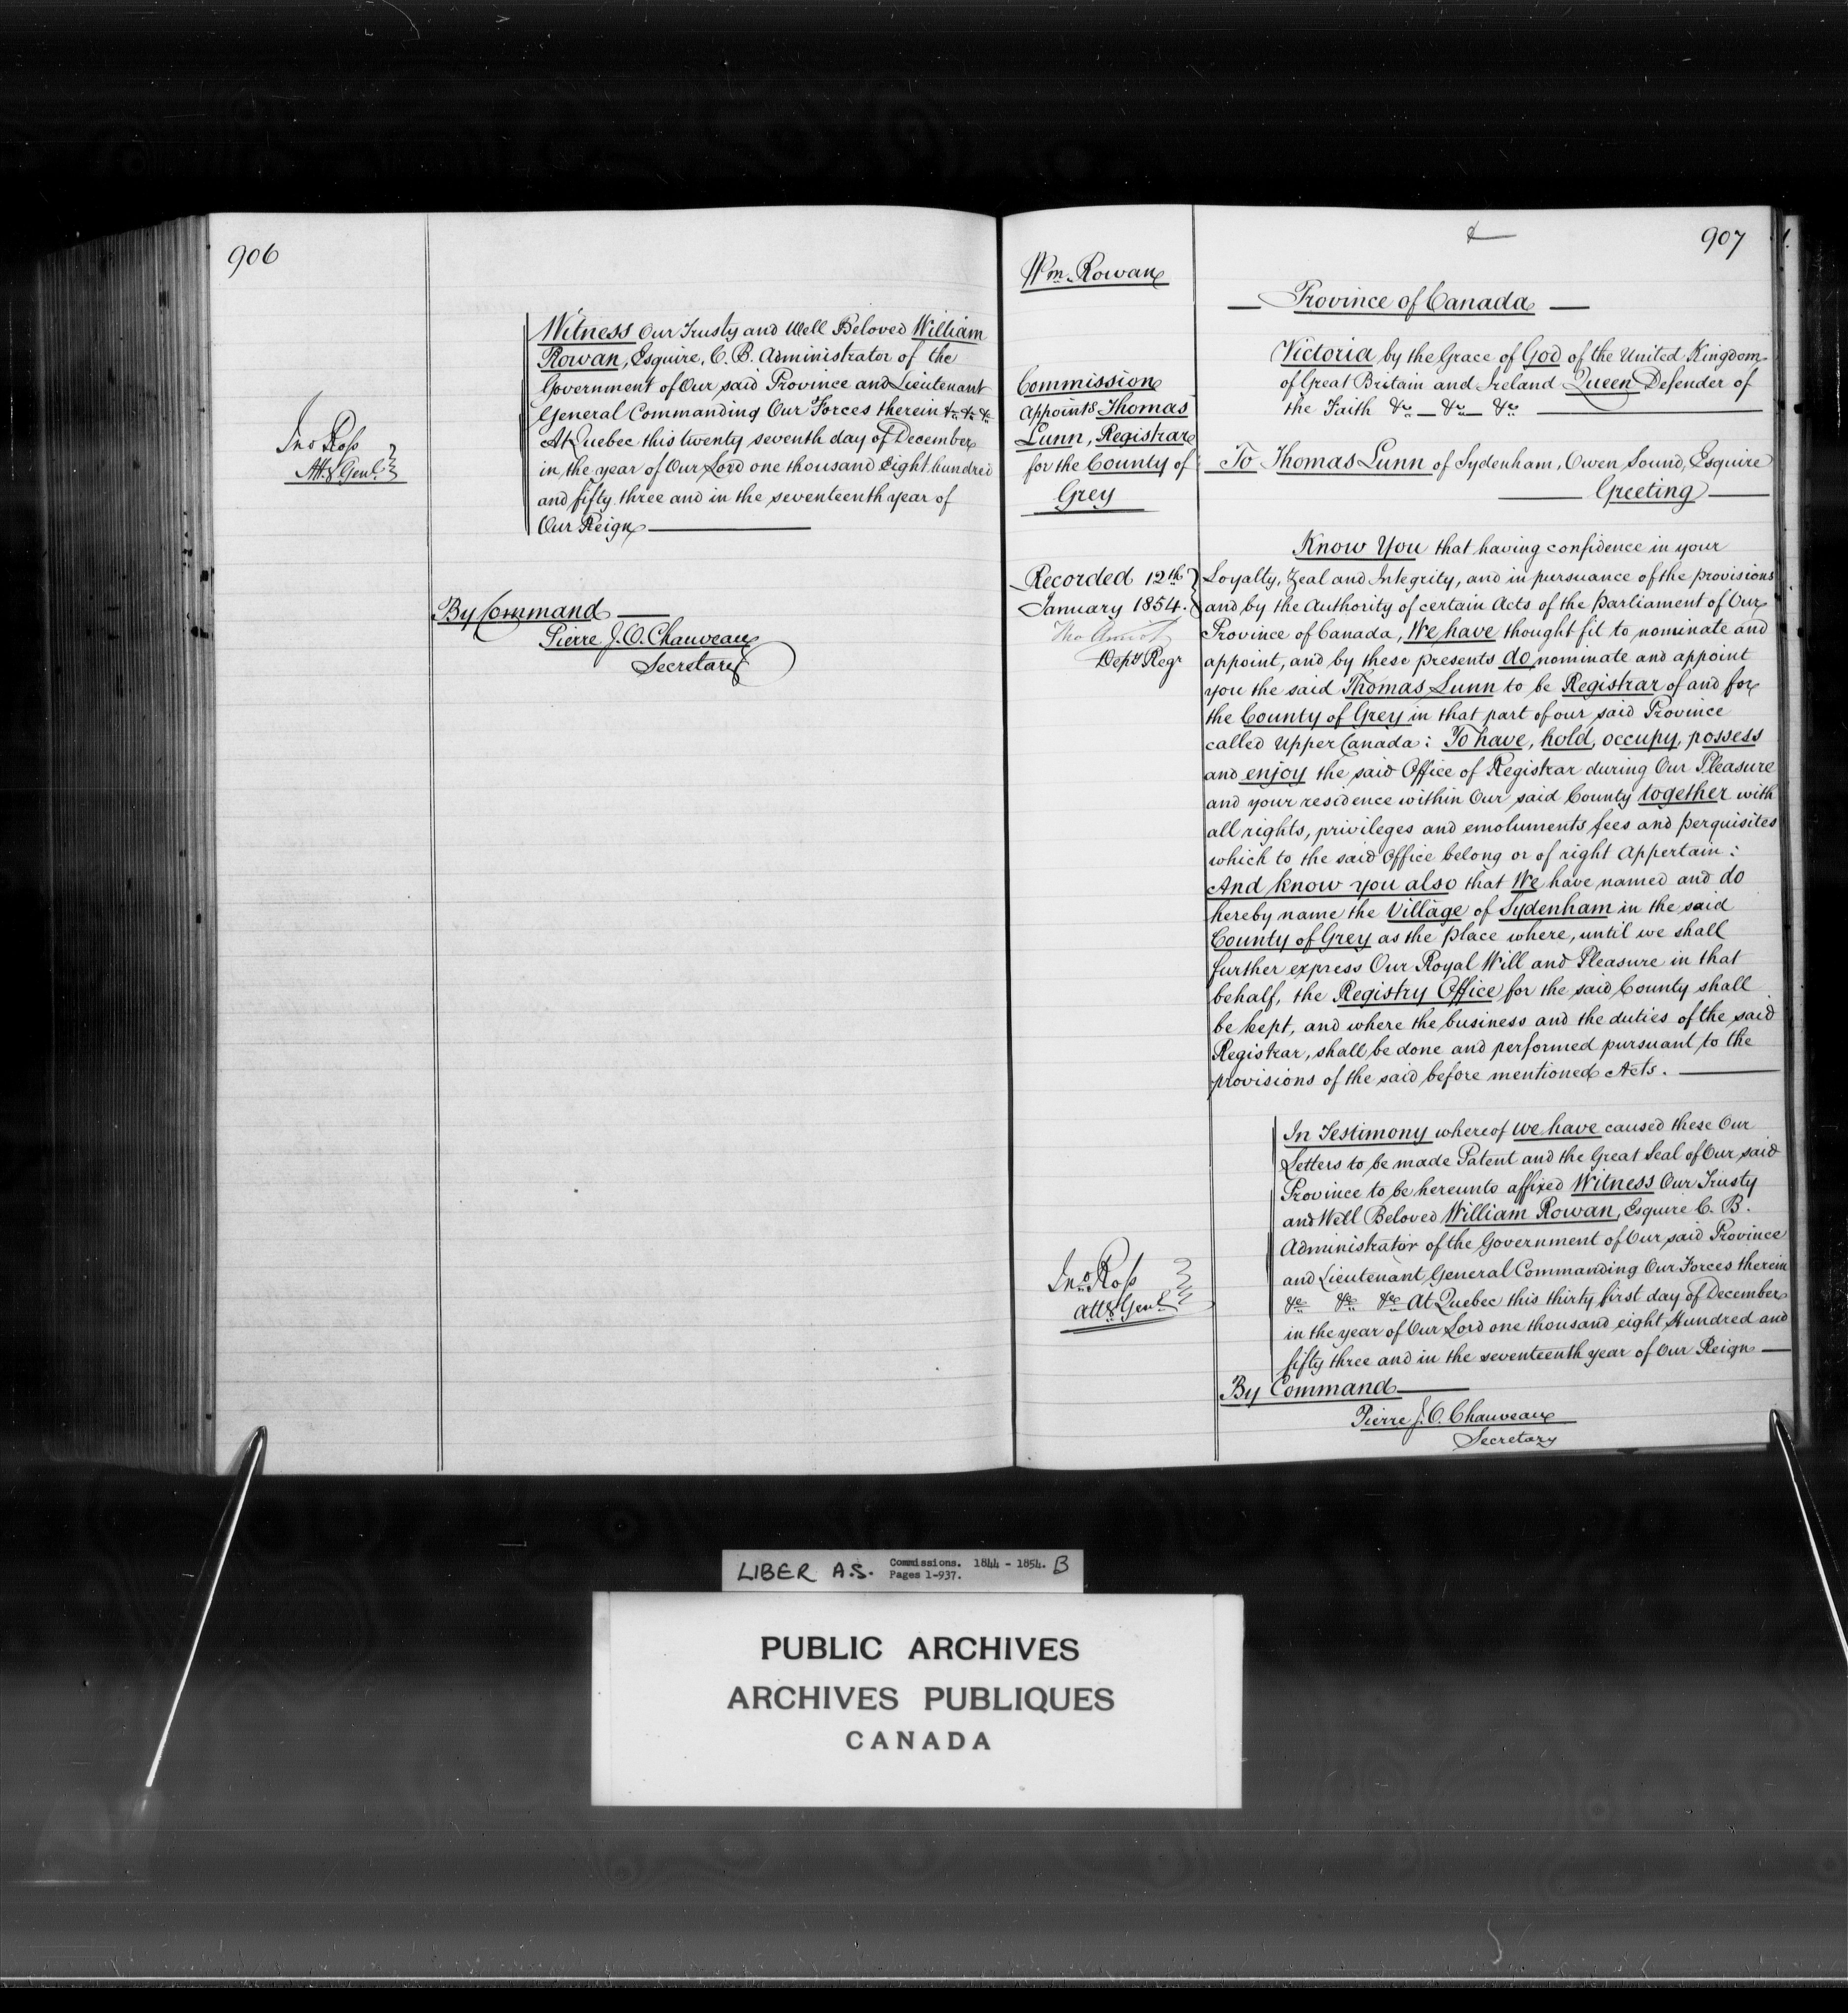 906
Witness Our Trusty and Well Beloved William
Rowan, Esquire, C. B. Administrator of the
Government of Our said Province and Lieutenant
General Commanding Our Forces therein &c &c &c
At Quebec this twenty seventh day of December
in the year of Our Lord one thousand Eight hundred
and fifty three and in the seventeenth year of
Our Reign
Jno Ross
Atty Genl
By Command
Pierre J. O. Chauveau
Secretary
907
Wm. Rowan
Commission
appoints Thomas
Lunn, Registrar
for the County of
Grey
Recorded 12th
January 1854.
Depy Regr
Province of Canada
Victoria by the Grace of God of the United Kingdom
of Great Britain and Ireland Queen Defender of
the Faith &c &c &c
To Thomas Lunn of Sydenham, Owen Sound, Esquire
Greeting
Know You that having confidence in your
Loyalty, Zeal and Integrity, and in pursuance of the provisions
and by the Authority of certain Acts of the Parliament of Our
Province of Canada, We have thought fit to nominate and
appoint, and by these presents do nominate and appoint
you the said Thomas Lunn to be Registrar of and for
the County of Grey in that part of our said Province
called Upper Canada: To have, hold, occupy, possess
and enjoy the said Office of Registrar during Our Pleasure
and your residence within Our said County together with
all rights, privileges and emoluments fees and perquisites
which to the said Office belong or of right Appertain:
And know you also that We have named and do
hereby name the Village of Sydenham in the said
County of Grey as the place where, until we shall
further express Our Royal Will and Pleasure in that
behalf, the Registry Office for the said County shall
be kept, and where the business and the duties of the said
Registrar, shall be done and performed pursuant to the
provisions of the said before mentioned Acts.
In Testimony whereof we have caused these Our
Letters to be made Patent and the Great Seal of Our said
Province to be hereunto affixed Witness Our Trusty
and Well Beloved William Rowan, Esquire C. B.
Administrator of the Government of Our said Province
and Lieutenant General Commanding Our Forces therein
&c &c &c At Quebec this thirty first day of December
in the year of Our Lord one thousand eight Hundred and
fifty three and in the seventeenth year of Our Reign
Jno Ross
Atty Genl
By Command
Pierre J. O. Chauveau
Secretary
LIBER A.S. Commissions. 1844 - 1854. B
Pages 1-937.
PUBLIC ARCHIVES
ARCHIVES PUBLIQUES
CANADA